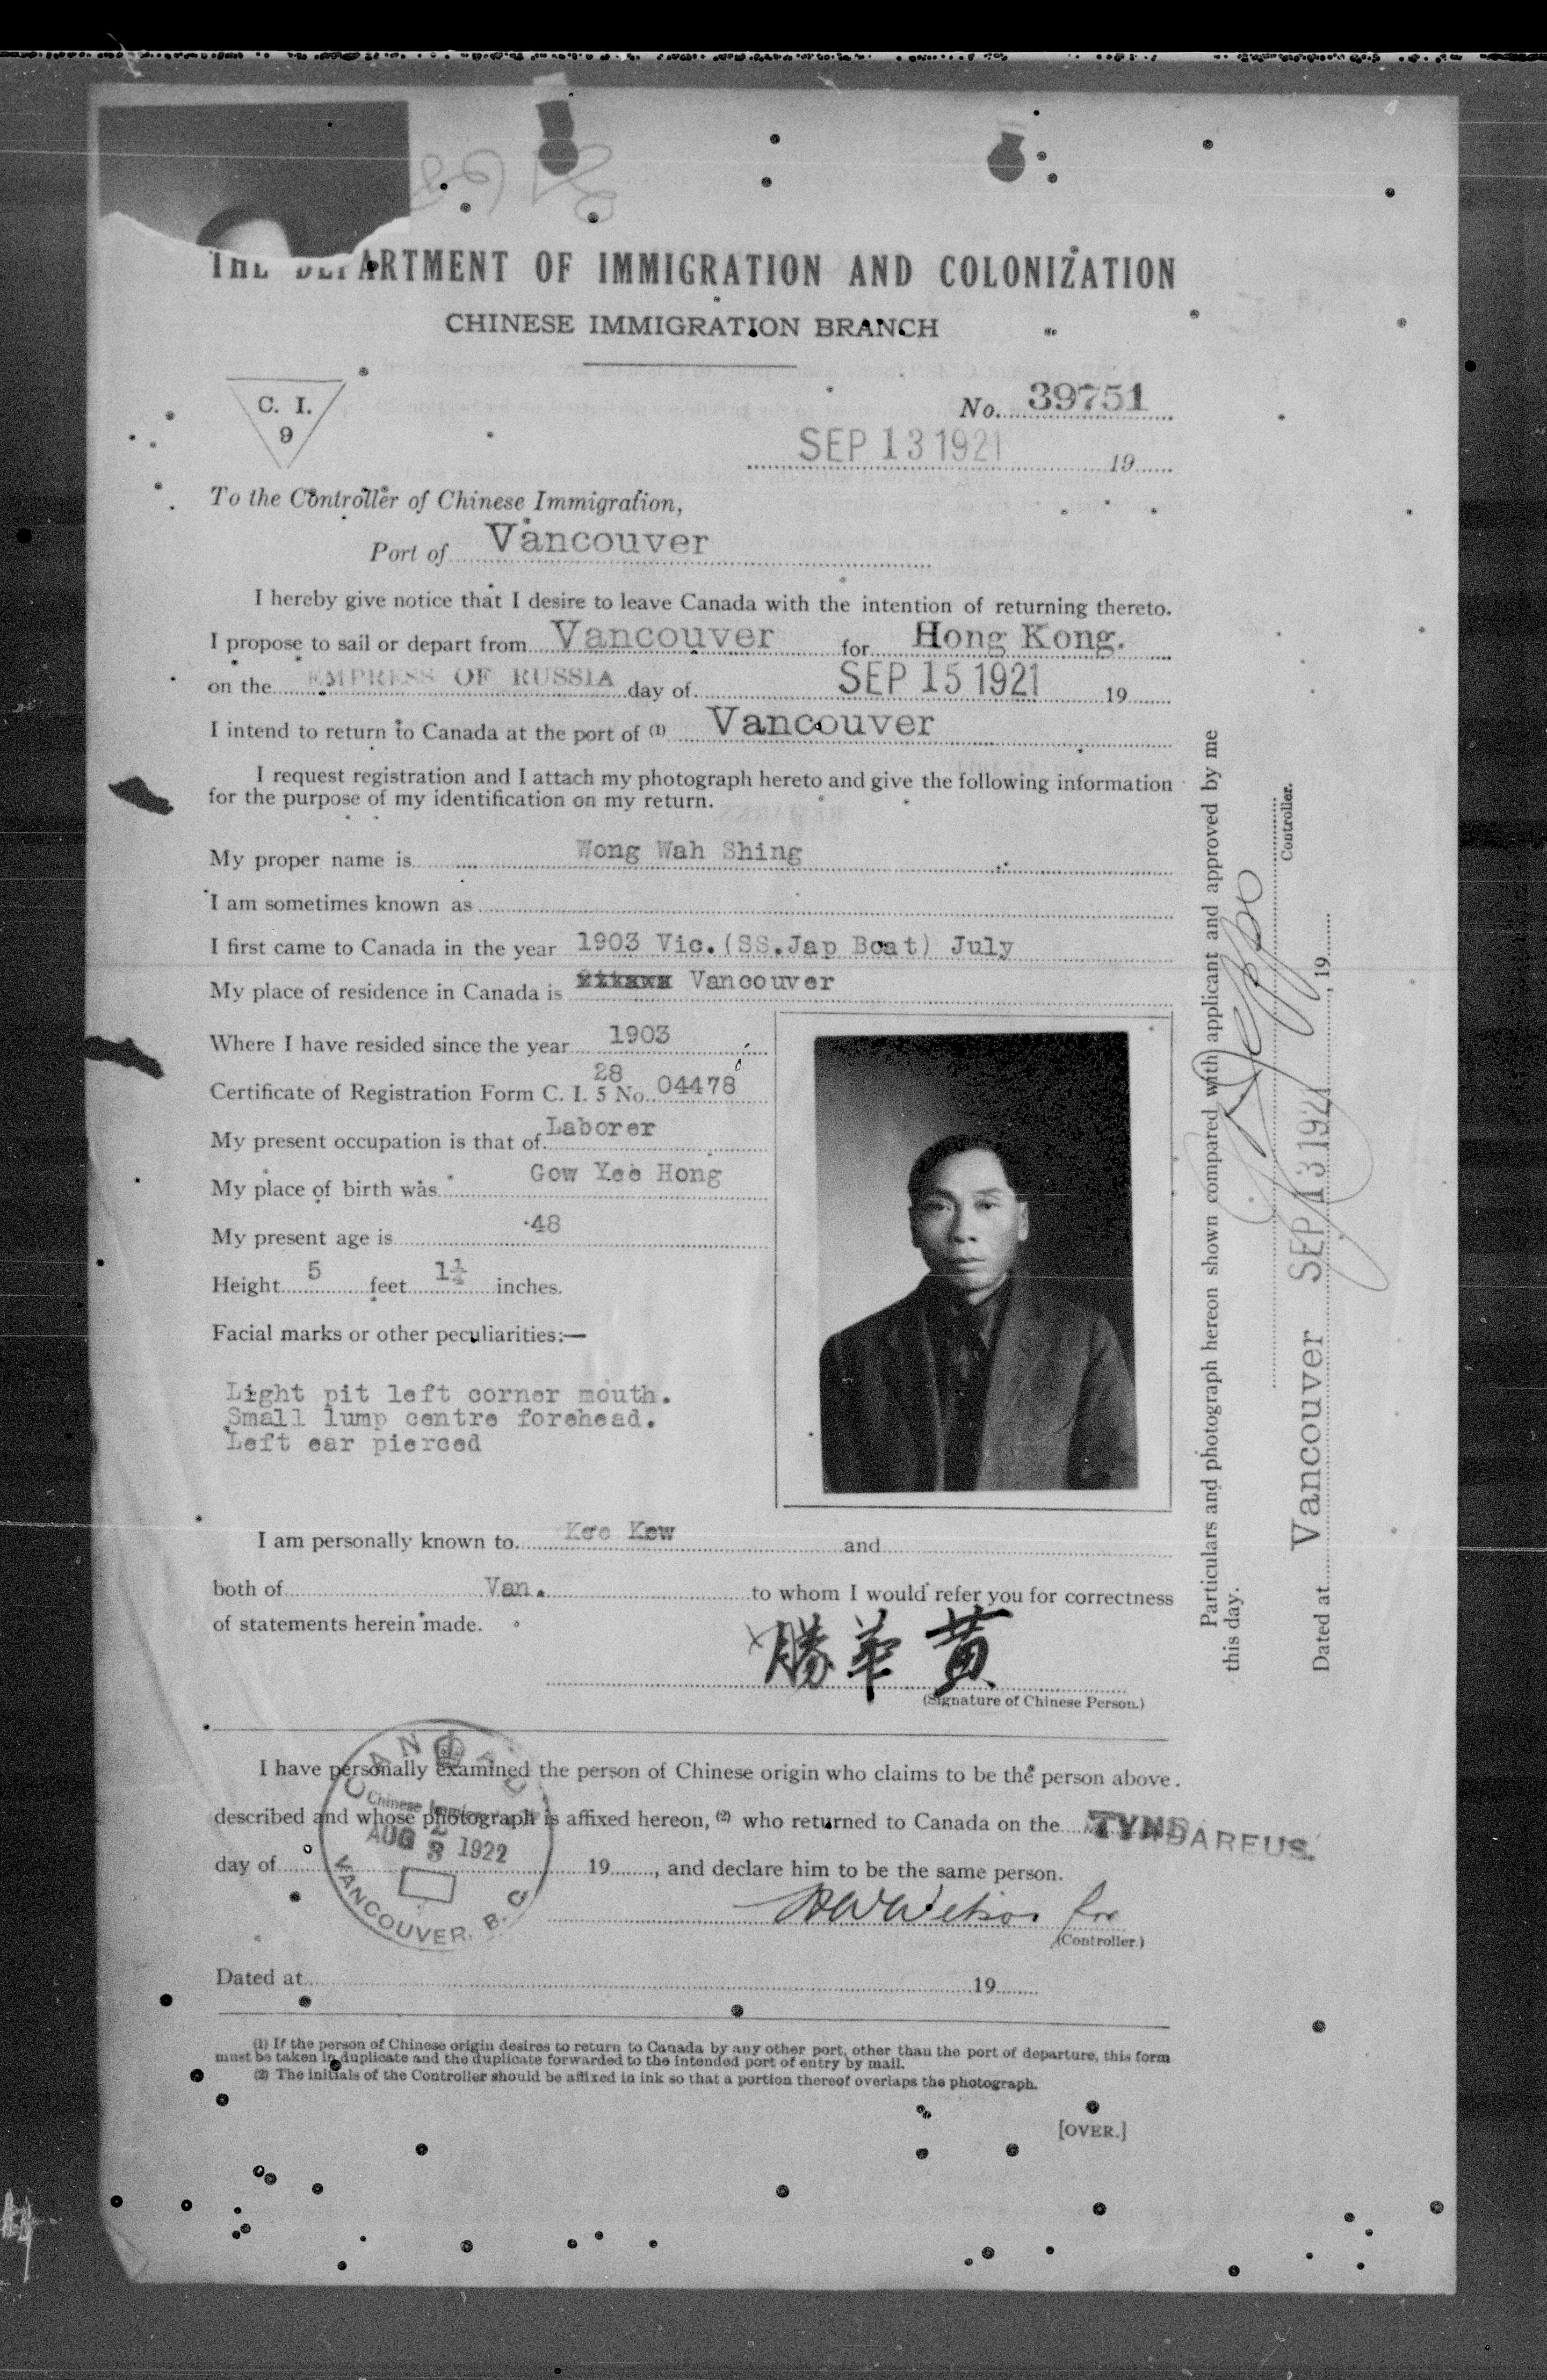 THE DEPARTMENT OF IMMIGRATION AND COLONIZATION
CHINESE IMMIGRATION BRANCH
C. I.
9
No. 39751
SEP 13 1921 19
To the Controller of Chinese Immigration,
Port of Vancouver
I hereby give notice that I desire to leave Canada with the intention of returning thereto.
I propose to sail or depart from Vancouver for Hong Kong.
on the EMPRESS OF RUSSIA day of SEP 15 1921 19
I intend to return to Canada at the port of (1) Vancouver
I request registration and I attach my photograph hereto and give the following information
for the purpose of my identification on my return.
My proper name is Wong Wah Shing
I am sometimes known as
I first came to Canada in the year 1903 Vic. (SS.Jap Boat) July
My place of residence in Canada is Vancouver
Where I have resided since the year 1903
28
Certificate of Registration Form C. I. 5 No. 04478
My present occupation is that of Laborer
My place of birth was Gow Yee Hong
My present age is 48
Height 5 feet 1¼ inches.
Facial marks or other peculiarities:—
Light pit left corner mouth.
Small lump centre forehead.
Left ear pierced
I am personally known to Kee Kew and
both of Van. to whom I would refer you for correctness
of statements herein made.
勝華黃
(Signature of Chinese Person.)
I have personally examined the person of Chinese origin who claims to be the person above
described and whose photograph is affixed hereon, (2) who returned to Canada on the TYNDAREUS.
day of 19, and declare him to be the same person.
CANADA
Chinese Immigration
AUG 2 1922
3
VANCOUVER, B. C.
for
(Controller.)
Dated at 19
(1) If the person of Chinese origin desires to return to Canada by any other port, other than the port of departure, this form
must be taken in duplicate and the duplicate forwarded to the intended port of entry by mail.
(2) The initials of the Controller should be affixed in ink so that a portion thereof overlaps the photograph.
[OVER.]
Particulars and photograph hereon shown compared with applicant and approved by me
this day.
Controller.
Dated at Vancouver SEP 13 1921, 19